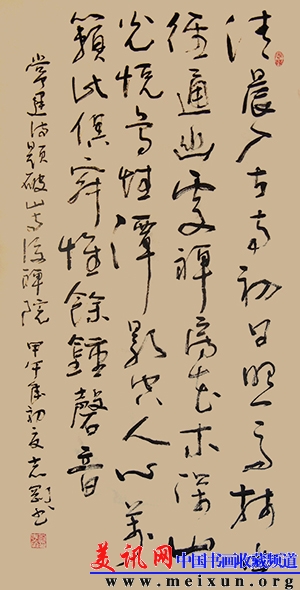 清晨入古寺初日照高林曲
徑通幽處禪房花木深山
光悅鳥性潭影空人心萬
籟此俱寂惟餘鐘磬音
常建詩題破山寺後禪院 甲午年初夏志剛书
美讯网 中国书画收藏频道
www.meixun.org